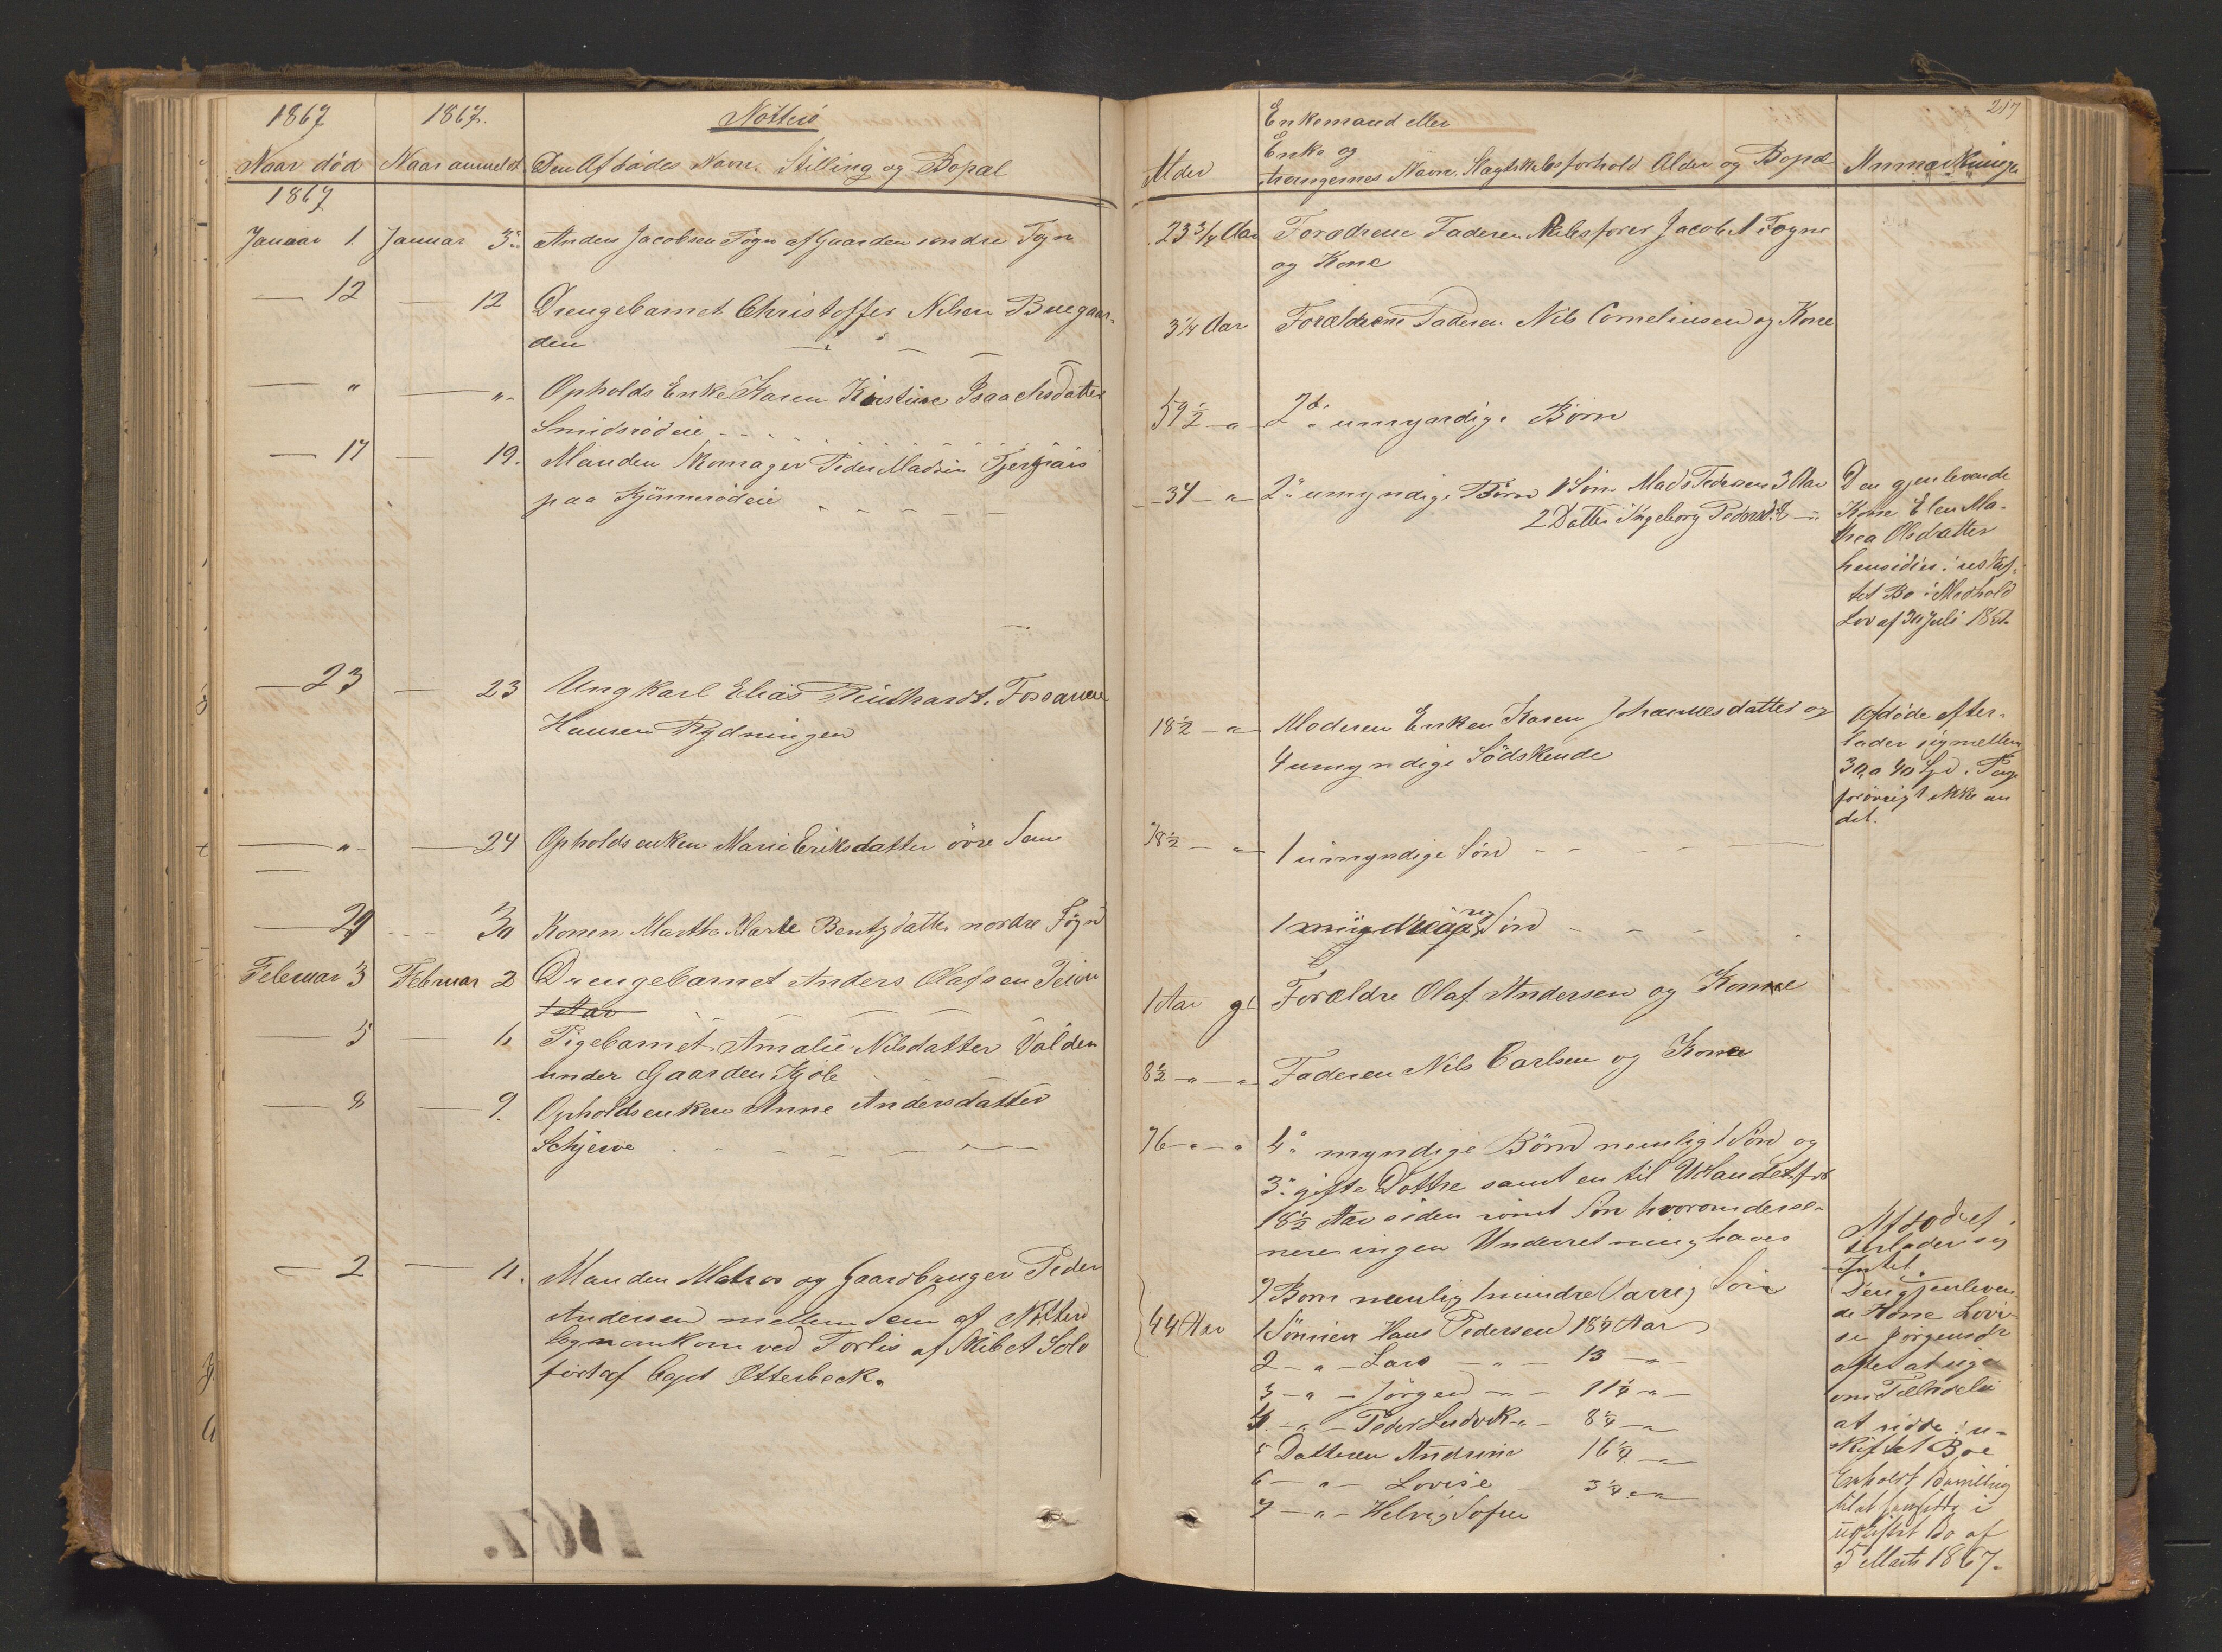 1867 1867. Nötterö
Naar död Naar anmeldt Den Afdödes Navn. Stilling og Bopæl
1867
Januar 1. Januar 3. Anders Jacobsen Fögn af Gaarden söndre Fogn
12 12 Drengebarnet Christoffer Nilsen Buegaar-
den
" " Opholds Enke Karen Kirstine Isaachsdatter
Smidsrödeie
17 19. Manden Skomager Peder Madsen
paa
23 23 Ungkarl Elias Reinhardt
Hansen Rydningen
" 24 Opholdsenken Marie Eriksdatter övre Sem
29 30 Konen Marthe Marie Bentzdatter nordre Fögn
Februar 3 Februar 2 Drengebarnet Anders Olafsen
1 Aar
5 6 Pigebarnet Amalie Nilsdatter
under Gaarden
8 9. Opholdsenken Anne Andersdatter
Schjerve
2 11. Manden Matros og Gaardbruger Peder
Andersen mellem Sem af Nötterö
Sogn omkom ved Forlis af Skibet Solo
fört af Capt Otterbeck.
1867.
217
Enkemand eller
Enke og
Alder Arvingernes Navn. Slægtskabsforhold Alder og Bopæl Anmærkninger
23 3/4 Aar Forældrene Faderen Skibsförer Jacob A Fogn
og Kone
3 1/4 Aar Forældrene Faderen Nils Corneliusen og Kone
59 1/2 " 2 umyndige Börn
34 " 2 umyndige Börn 1 Sön Mads Pedersen 3 Aar
2 Datter Ingeborg Pedersd.
Den gjenlevende
Kone Elen Ma-
thea Olsdatter
hensidder i uskif-
tet Bo i Medhold
Lov af 30 Juli 1851.
18 1/2 " Moderen Enken Karen Johannesdatter og
4 umyndige Södskende
Afdöde efter-
lader sig mellem
30 a 40 Spd. i Penge
forövrigt ikke an
det.
78 1/2 " 1 umyndige Sön
1 Sön
1 Aar gl Forældre Olaf Andersen og Kone
8 1/2 " " Faderen Nils Carlsen og Kone
76 " " 4 myndige Börn nemlig 1 Sön og
3 gifte Döttre samt en til Udlandet for
18 1/2 Aar siden römt Sön hvorom derse-
nere ingen Underretning haves
Afdöde ef-
terlader sig
Intet.
44 Aar 7 Born nemlig 1 mindreaarrig Sön
1 Sönnen Hans Pedersen 18 1/4 Aar
2 " Lars " 13 "
3 " Jörgen " 11 1/4 "
4 " Peder Ludvik " 8 1/4 "
5 Datteren Andrine 16 1/4 "
6 " Lovise 3 1/4 "
7 " Helvig Sofie
Den gjenleven
de Kone Lovi-
se Jörgensdr
agter at söge
om Tilladelse
at sidde i u-
skiftet Boe
Erholdt Bevilling
til at hensidde i
uskiftet Bo af
5 Marts 1867.